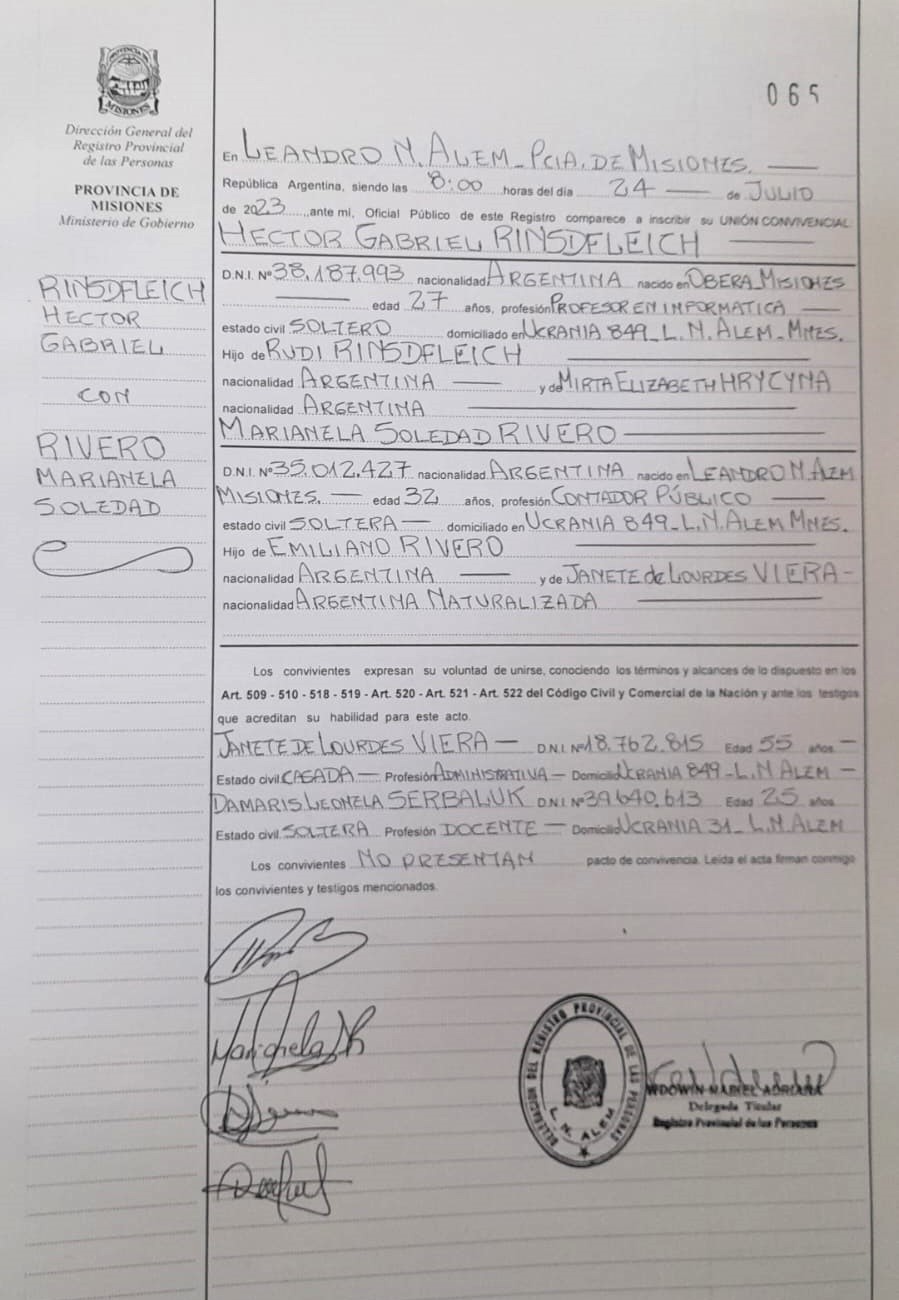 PROVINCIA DE
MISIONES
Dirección General del
Registro Provincial
de las Personas
PROVINCIA DE
MISIONES
Ministerio de Gobierno
RINSDFLEICH
HECTOR
GABRIEL
CON
RIVERO
MARIANELA
SOLEDAD
065
En LEANDRO N. ALEM_ PCIA. DE MISIONES.
República Argentina, siendo las 8:00 horas del día 24 de JULIO
de 2023, ante mi, Oficial Público de este Registro comparece a inscribir su UNIÓN CONVIVENCIAL
HECTOR GABRIEL RINSDFLEICH
D.N.I. Nº 38.187.993 nacionalidad ARGENTINA nacido en OBERA_MISIONES
edad 27 años, profesión PROFESOR EN INFORMATICA
estado civil SOLTERO domiciliado en UCRANIA 849_L.N. ALEM_MNES.
Hijo de RUDI RINSDFLEICH
nacionalidad ARGENTINA y de MIRTA ELIZABETH HRYCYNA
nacionalidad ARGENTINA
MARIANELA SOLEDAD RIVERO
D.N.I. Nº 35.012.427 nacionalidad ARGENTINA nacido en LEANDRO N. ALEM
MISIONES. edad 32 años, profesión CONTADOR PÚBLICO
estado civil SOLTERA domiciliado en UCRANIA 849_L.N. ALEM MNES.
Hijo de EMILIANO RIVERO
nacionalidad ARGENTINA y de JANETE de LOURDES VIERA
nacionalidad ARGENTINA NATURALIZADA
Los convivientes expresan su voluntad de unirse, conociendo los términos y alcances de lo dispuesto en los
Art. 509 - 510 - 518 - 519 - Art. 520 - Art. 521 - Art. 522 del Código Civil y Comercial de la Nación y ante los testigos
que acreditan su habilidad para este acto.
JANETE DE LOURDES VIERA D.N.I. Nº 18.762.815 Edad 55 años
Estado civil CASADA Profesión ADMINISTRATIVA Domicilio UCRANIA 849_L.N ALEM
DAMARIS LEONELA SERBALUK D.N.I. Nº 39.640.613 Edad 25 años
Estado civil SOLTERA Profesión DOCENTE Domicilio UCRANIA 31_L.N. ALEM
Los convivientes NO PRESENTAN pacto de convivencia. Leída el acta firman conmigo
los convivientes y testigos mencionados.
Marianela
DELEGACION DEL REGISTRO PROVINCIAL DE LAS PERSONAS
L. N. ALEM
WDOWIN MABEL ADRIANA
Delegada Titular
Registro Provincial de las Personas